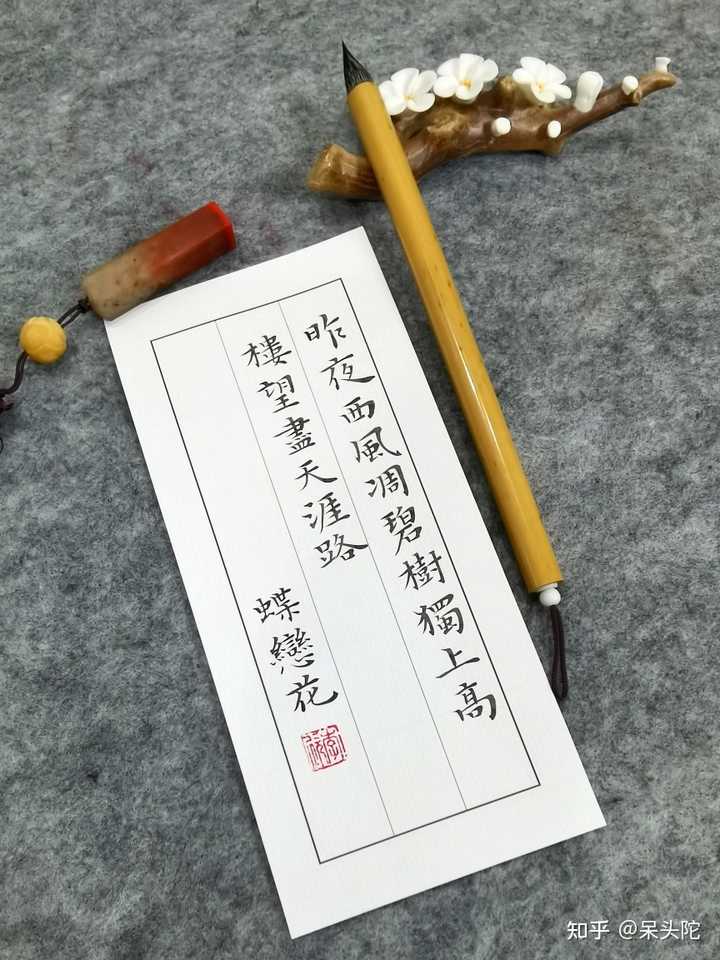 昨夜西風凋碧樹獨上高
樓望盡天涯路
蝶戀花
知乎 @呆头陀